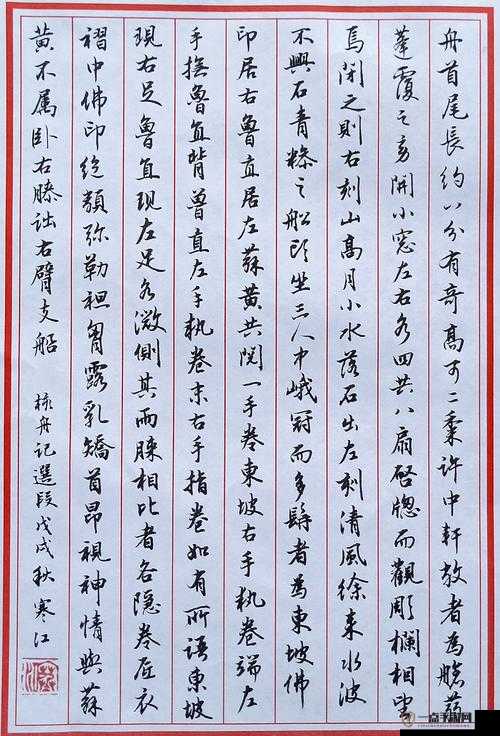 舟首尾長約八分有奇高可二黍許中軒敞者為艙箬
篷覆之旁開小窓左右各四共八扇啓牕而觀彫欄相望
焉閉之則右刻山高月小水落石出左刻清風徐来水波
不興石青糝之船頭坐三人中峨冠而多髯者為東坡佛
印居右魯直居左蘇黄共閲一手卷東坡右手執卷端左
手撫魯直背魯直左手執卷末右手指卷如有所語東坡
現右足魯直現左足各微側其兩膝相比者各隱卷底衣
褶中佛印绝類弥勒袒胷露乳矯首昂視神情與蘇
黄不属卧右膝詘右臂支船
核舟記選段戊戌秋寒江
一点手游网